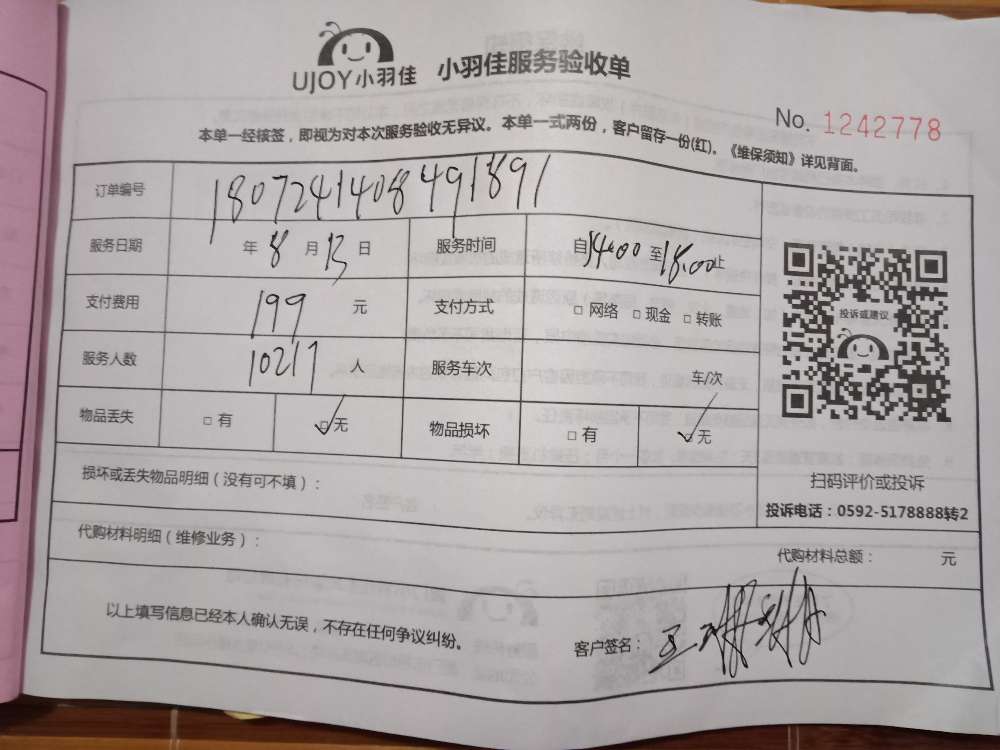 UJOY小羽佳 小羽佳服务验收单
No. 1242778
本单一经核签，即视为对本次服务验收无异议。本单一式两份，客户留存一份(红)。《维保须知》详见背面。
订单编号 1807241408491891
服务日期 年 8 月 13 日 服务时间 自 14:00 至 18:00 止
支付费用 199 元 支付方式 □ 网络 □ 现金 □ 转账
服务人数 10217 人 服务车次 车/次
物品丢失 □ 有 ☑ 无 物品损坏 □ 有 ☑ 无
投诉或建议
扫码评价或投诉
投诉电话：0592-5178888转2
损坏或丢失物品明细（没有可不填）：
代购材料明细（维修业务）： 代购材料总额： 元
以上填写信息已经本人确认无误，不存在任何争议纠纷。 客户签名：